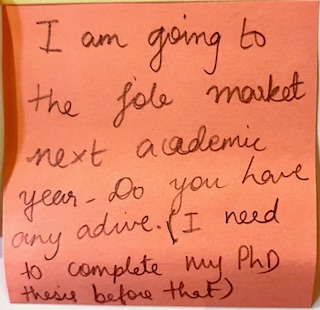 I am going to
the jole market
next academic
year - Do you have
any adive. (I need
to complete my PhD
thesis before that)